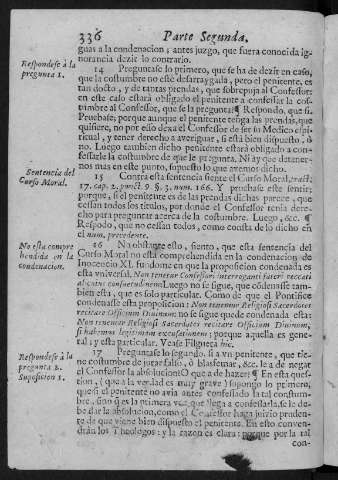 336 Parte Segunda.
guas a la condenacion; antes juzgo, que fuera conocida ig-
norancia dezir lo contrario.
Respondese à la
pregunta 1.
14 Preguntase lo primero, que se ha de dezir en caso,
que la costumbre no estè desarraygada, pero el penitente, es
tan docto, y de tantas prendas, que sobrepuja al Confessor:
en este caso estarà obligado el penitente a confessar la cos-
tumbre al Confessor, que se la pregunta? Respondo, que si.
Pruebase; porque aunque el penitente tenga las prendas, que
quisiere, no por esso dexa el Confessor de ser su Medico espi-
ritual, y tener derecho a averiguar, si està bien dispuesto, ò
no. Luego tambien dicho penitente estarà obligado a con-
fessarle la costumbre de que le pregunta. Ni ay que detener-
nos mas en este punto, supuesto lo que avemos dicho.
Sentencia del
Curso Moral.
15 Contra esta sentencia siente el Curso Moral, tract.
17. cap. 2. punct. 9. §. 3. num. 166. Y pruebase este sentir;
porque, si el penitente es de las prendas dichas parece, que
cessan todos los titulos, por donde el Confessor tenia dere-
cho para preguntar acerca de la costumbre. Luego, &c. ¶
Respodo, que no cessan todos, como consta de lo dicho en
el num. precedente.
No està compre
hendida en la
condenacion.
16 No obstante esto, siento, que esta sentencia del
Curso Moral no està comprehendida en la condenacion de
Inocencio XI. fundome en que la proposicion condenada es
esta vniversal, Non tenemur Confessori interroganti fateri peccati
alicuius consuetudinem. Luego no se sigue, que còdenasse tam-
bien esta, que es solo particular. Como de que el Pontifice
condenasse esta proposicion: Non tenemur Religiosi Sacerdotes
recitare Officium Divinum; no se sigue quede condenada esta:
Non tenemur Religiosi Sacerdotes recitare Officium Divinum,
si habemus legitimam excusationem; porque aquella es gene-
ral; y esta particular. Vease Filguera hic.
Respondese à la
pregunta 2.
Suposicion 1.
17 Preguntase lo segundo, si a vn penitente, que tie-
ne costumbre de jurar falso, ò blasfemar, &c. le a de negar
el Confessor la absolucion? O que a de hazer? ¶ En esta ques-
tion, (que a la verdad es muy grave) supongo lo primero,
quesi el penitente no avia antes confessado la tal costum-
bre, sino q es la primera vez, que llega a confessarla, se le de-
be dar la absolucion, como el Confessor haga juizio pruden-
te de que viene bien dispuesto el penitente. En esto conven-
dràn los Theologos: y la razon es clara; porque por la tal
con-